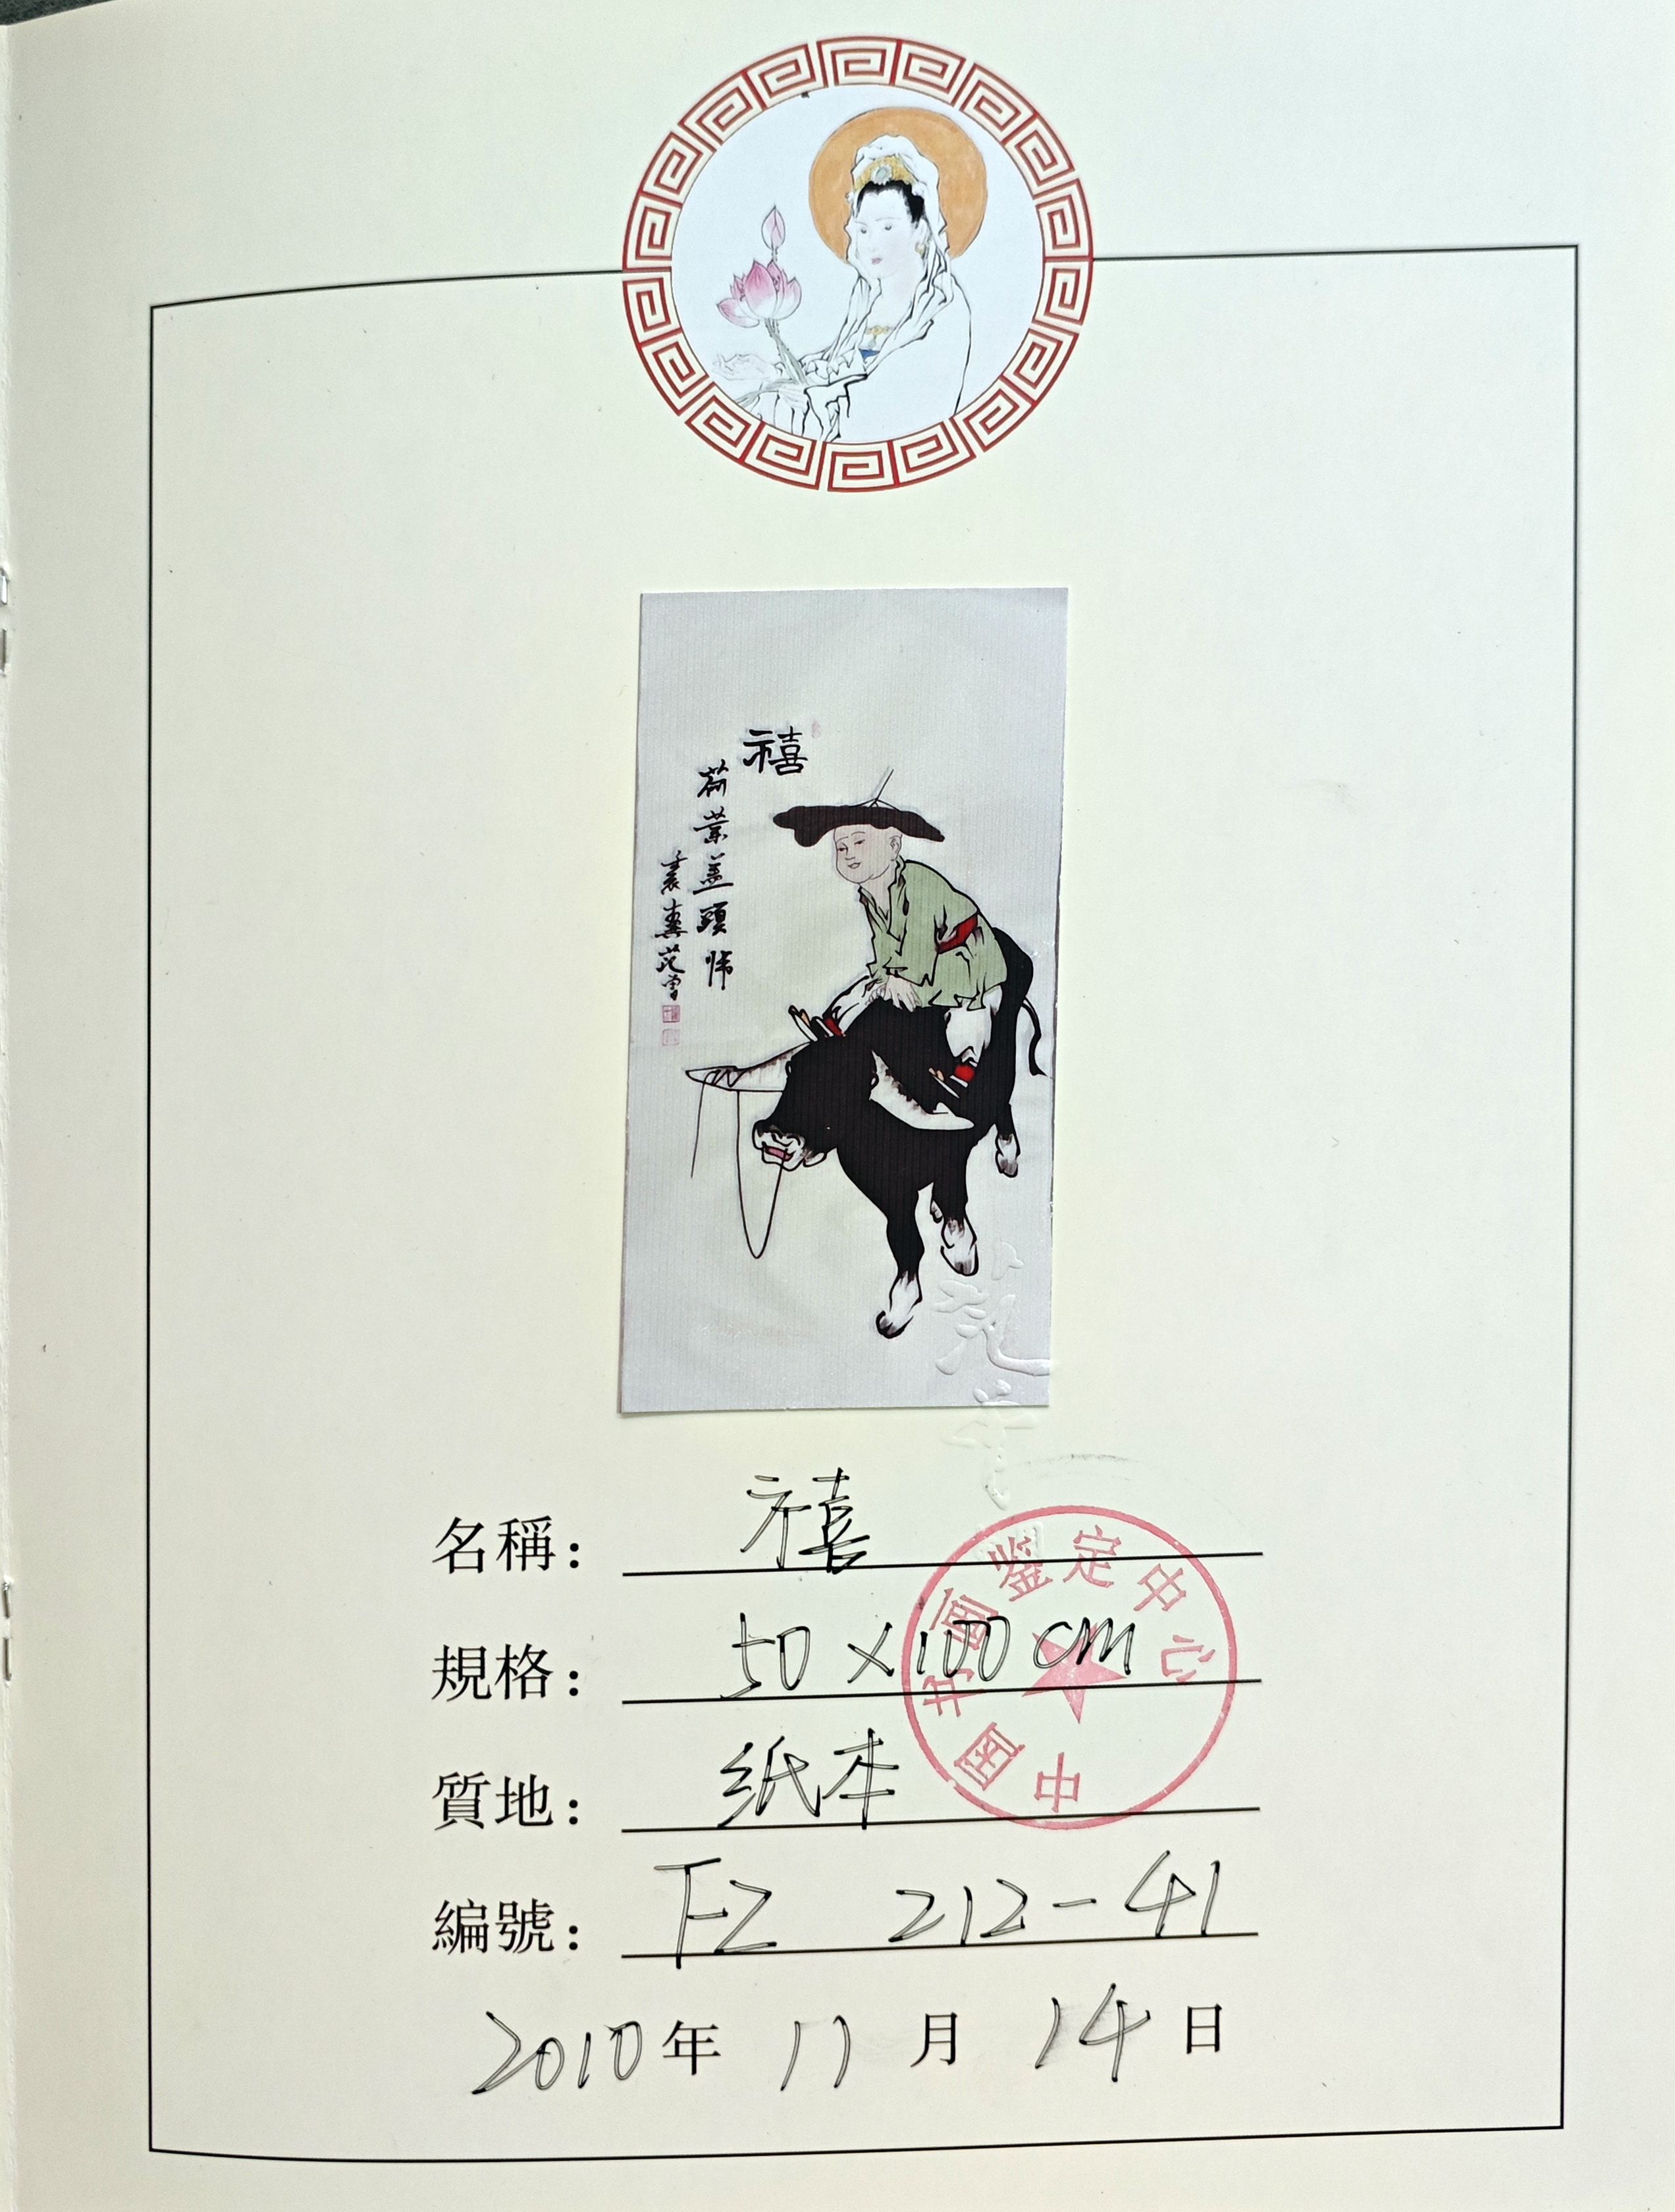 禧
荷葉蓋頭歸
范曾
名稱: 禧
規格: 50×100cm
質地: 纸本
編號: FZ 212-41
2010年 11月 14日
中国书画鉴定中心
范曾